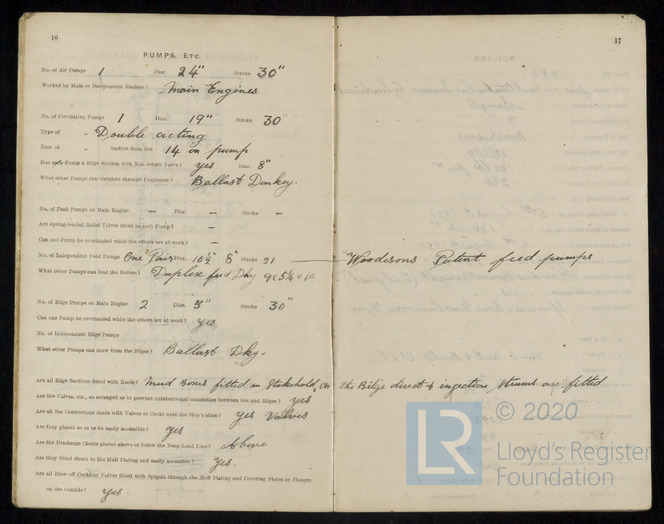 16
PUMPS, ETC
No. of Air Pumps 1 Diar. 24" Stroke 30"
Worked by Main or Independent Engines? Main Engines
No. of Circulating Pumps 1 Diar. 19" Stroke 30"
Type of " Double acting
Diar. of " Suction from Sea 14 on pump
Has each Pump a Bilge Suction with Non-return Valve? yes Diar. 8"
What other Pumps can circulate through Condenser? Ballast Donkey.
No. of Feed Pumps on Main Engine — Diar. — Stroke —
Are Spring-loaded Relief Valves fitted to each Pump? —
Can one Pump be overhauled while the others are at work? —
No. of Independent Feed Pumps One Pair Diar. 10½ 8" Stroke 21 — Woodesons Patent feed pumps
What other Pumps can feed the Boilers? Duplex feed Dky 9 x 5¼ x 10
No. of Bilge Pumps on Main Engine 2 Diar. 5" Stroke 30"
Can one Pump be overhauled while the others are at work? yes
No. of Independent Bilge Pumps
What other Pumps can draw from the Bilges? Ballast Dky.
Are all Bilge Suctions fitted with Roses? Mud Boxes fitted in Stokehold, on the Bilge direct & injection, strums are fitted
Are the Valves, etc., so arranged as to prevent unintentional connection between Sea and Bilges? yes
Are all Sea Connections made with Valves or Cocks next the ship's sides? yes Valves
Are they placed so as to be easily accessible? yes
Are the Discharge Chests placed above or below the Deep Load Line? Above
Are they fitted direct to the Hull Plating and easily accessible? Yes.
Are all Blow-off Cocks or Valves fitted with Spigots through the Hull Plating and Covering Plates or Flanges
on the Outside? yes.
17
LR © 2020
Lloyd's Register
Foundation